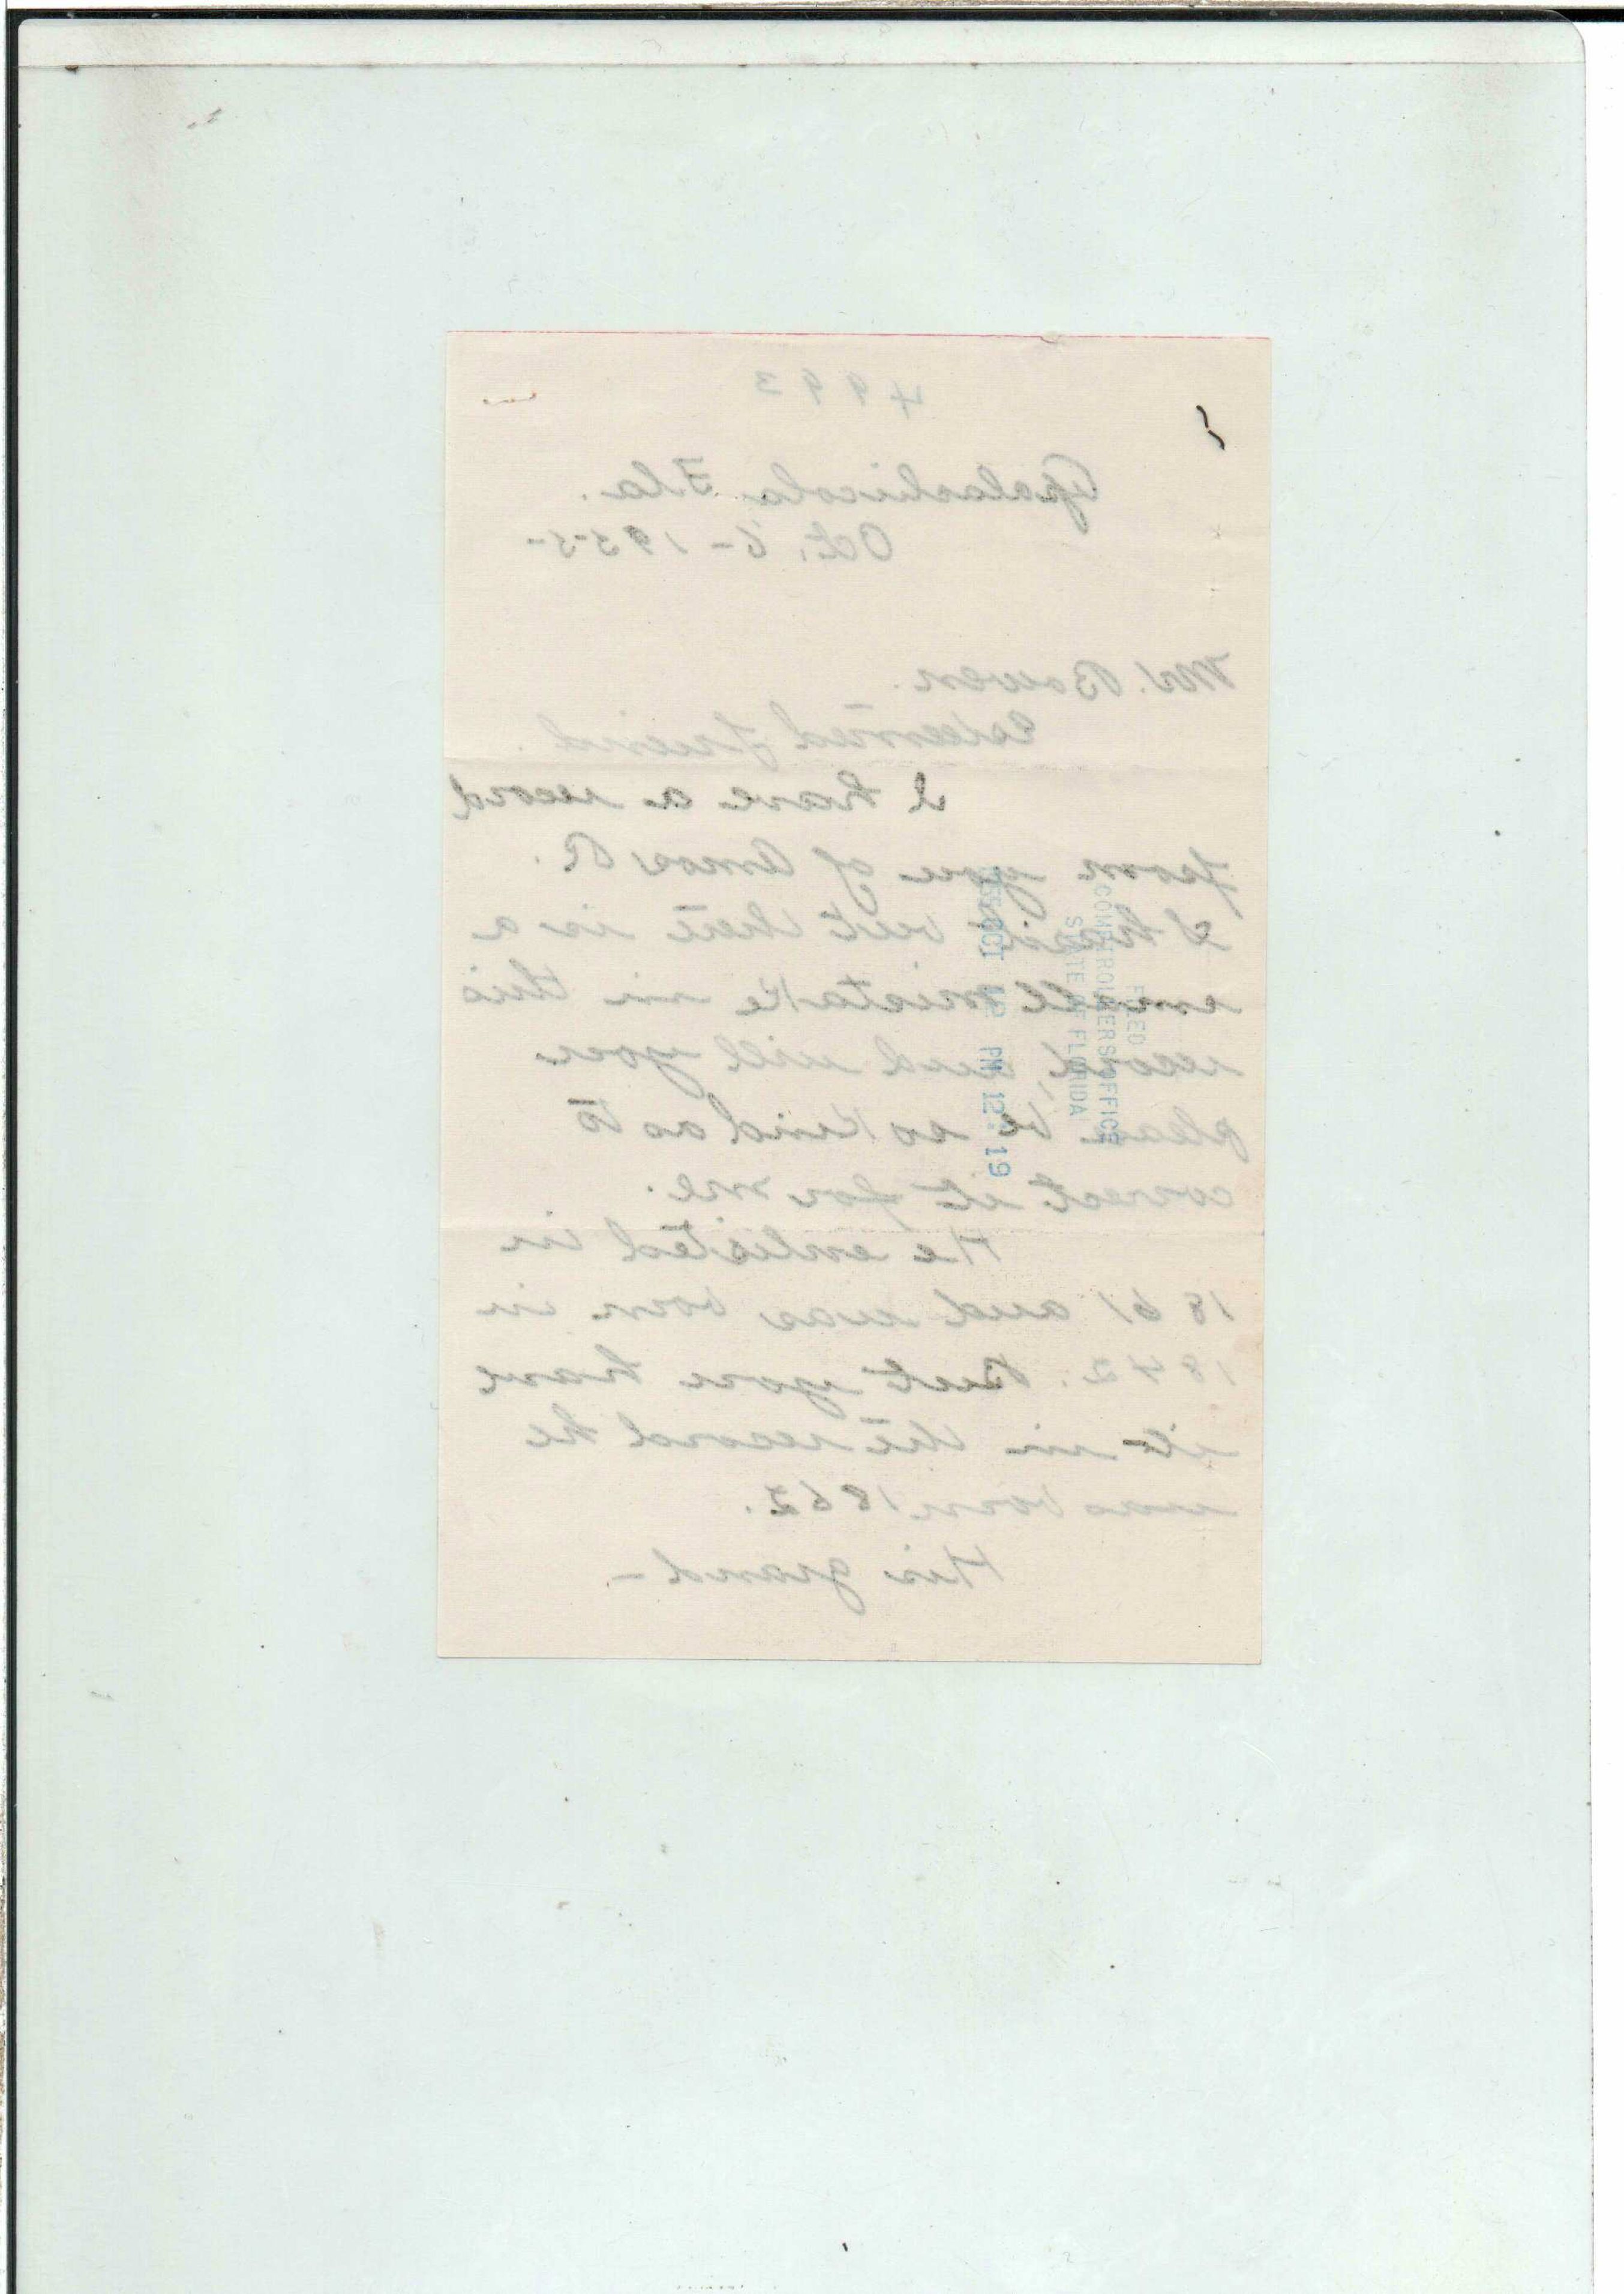 4993
Apalachicola Fla.
Oct. 6 - 1955-
Mr. Bowen.
Esteemed Friend.
I have a record
from you of Amos R.
but there is a
small mistake in this
record, and will you
please be so kind as to
correct it for me.
He enlisted in
1861 and was born in
1842. But you have
it in the record he
was born 1862.
His grand-
FILED
COMPTROLLERS OFFICE
STATE OF FLORIDA
OCT 12 PM 12:19